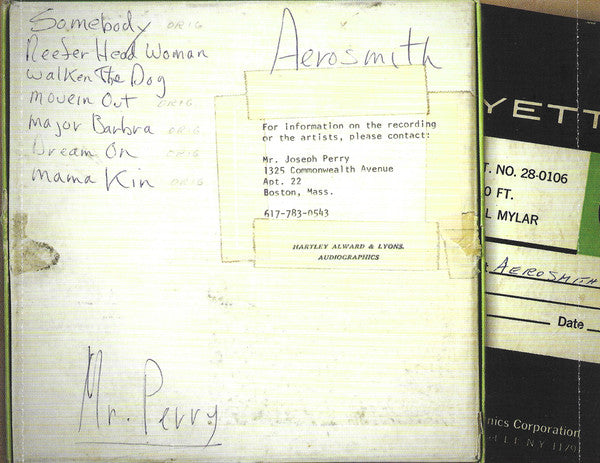 Somebody ORIG
Reefer Head Woman
Walken The Dog
Movein Out ORIG
Major Barbra ORIG
Dream On ORIG
Mama Kin ORIG
Aerosmith
For information on the recording
or the artists, please contact:
Mr. Joseph Perry
1325 Commonwealth Avenue
Apt. 22
Boston, Mass.
617-783-0543
HARTLEY ALWARD & LYONS.
AUDIOGRAPHICS
Mr. Perry
YETT
T. NO. 28-0106
0 FT.
L MYLAR
AEROSMITH
Date
nics Corporation